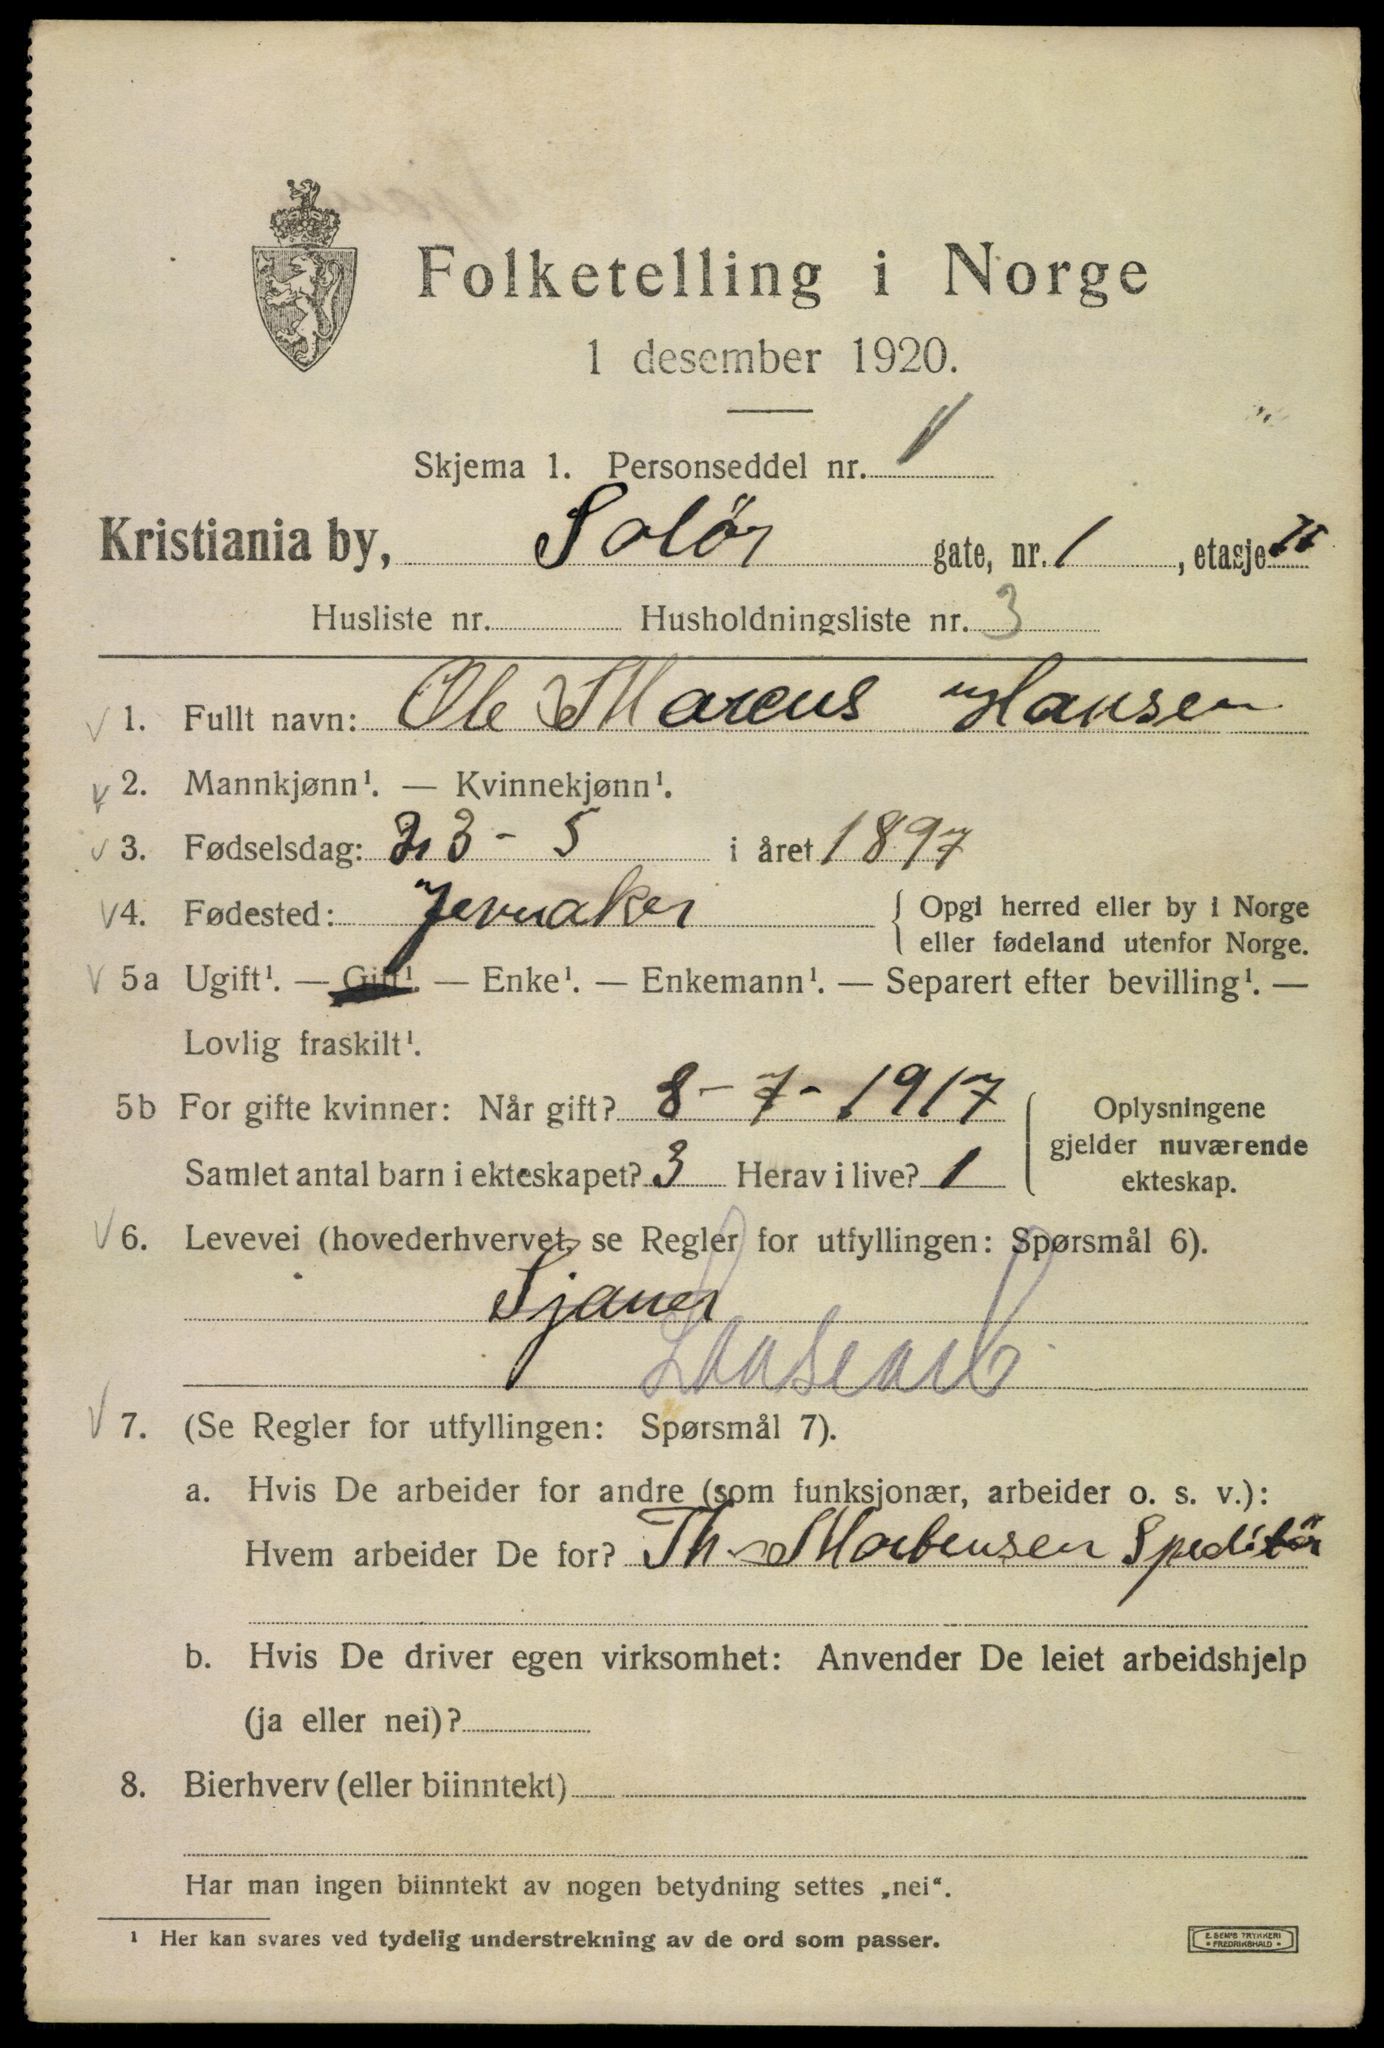 Folketelling i Norge
1 desember 1920.
Skjema 1. Personseddel nr. 1
Kristiania by, Solör gate, nr. 1, etasje II
Husliste nr. Husholdningsliste nr. 3
1. Fullt navn: Ole Marcus Hansen
2. Mannkjønn¹. — Kvinnekjønn¹.
3. Fødselsdag: 23 - 5 i året 1897
4. Fødested: Jevnaker { Opgi herred eller by i Norge
eller fødeland utenfor Norge.
5a Ugift¹. — Gift¹. — Enke¹. — Enkemann¹. — Separert efter bevilling¹. —
Lovlig fraskilt¹.
5b For gifte kvinner: Når gift? 8 - 7 - 1917 { Oplysningene
gjelder nuværende
Samlet antal barn i ekteskapet? 3 Herav i live? 1 ekteskap.
6. Levevei (hovederhvervet, se Regler for utfyllingen: Spørsmål 6).
Sjauer
7. (Se Regler for utfyllingen: Spørsmål 7).
a. Hvis De arbeider for andre (som funksjonær, arbeider o. s. v.):
Hvem arbeider De for? Th. Mortensen Speditör
b. Hvis De driver egen virksomhet: Anvender De leiet arbeidshjelp
(ja eller nei)?
8. Bierhverv (eller biinntekt)
Har man ingen biinntekt av nogen betydning settes „nei“.
¹ Her kan svares ved tydelig understrekning av de ord som passer.
E. SEM'S TRYKKERI
• FREDRIKSHALD •